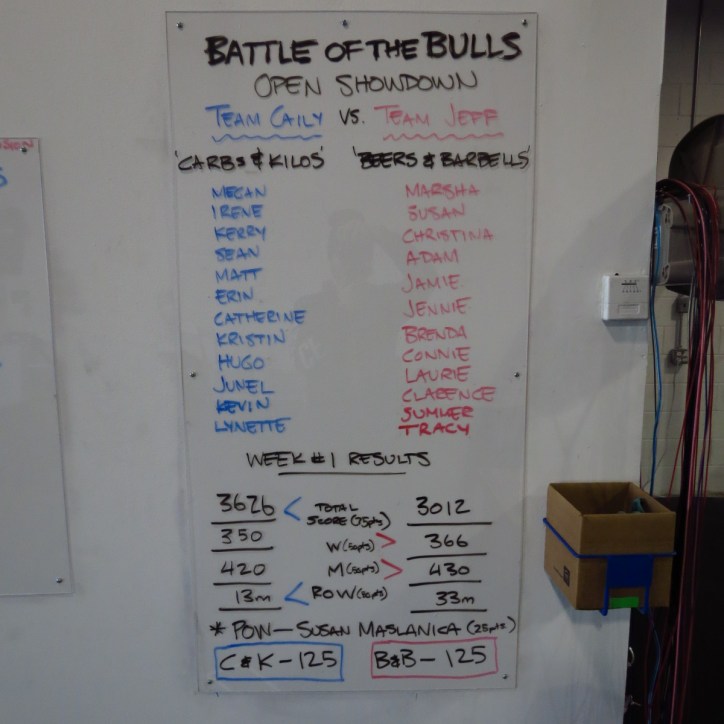 BATTLE OF THE BULLS
OPEN SHOWDOWN
TEAM CAILY VS. TEAM JEFF
'CARBS & KILOS' 'BEERS & BARBELLS'
MEGAN MARSHA
IRENE SUSAN
KERRY CHRISTINA
SEAN ADAM
MATT JAMIE
ERIN JENNIE
CATHERINE BRENDA
KRISTIN CONNIE
HUGO LAURIE
JUNEL CLARENCE
KEVIN SUMLER
LYNETTE TRACY
WEEK #1 RESULTS
3626 < TOTAL SCORE (75pts) 3012
350 W (50pts) > 366
420 M (50pts) > 430
13m < ROW (50pts) 33m
* POW — SUSAN MASLANICA (25pts)
C & K - 125 B&B - 125